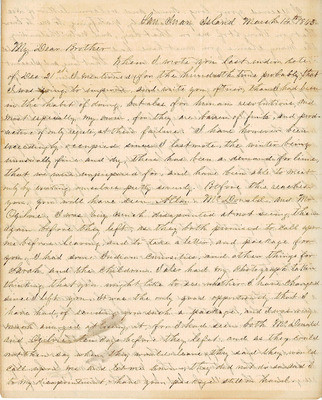 San Juan Island March 14th 1875
My Dear Brother
When I wrote you last under date
of Dec 21st I mentioned, for the hundredth time probably that
I was going to improve and write you oftener, than I had been
in the habit of doing, but alas for human resolutions, and
most especially my own, for they are barren of fruits, and prod
uctive of only regrets, at their failure. I have however been
exceedingly occupied since I last wrote, the winter being
unusually fine and dry, there has been a demand for lime,
that we were unprepared for, and have been able to meet
only by working ourselves pretty severely. Before this reaches
you, you will have seen Allan McDonald and Mr
Ogilvie. I was very much disappointed at not seeing them
again before they left, as they both promised to call upon
me before leaving, and to take a letter and package for
you, I had some Indian Curiosities, and other things for
Sarah and the children. I also had my photograph taken
thinking that you might like to see whether I have changed
since I left you. It was the only good opportunity that I
have had, of sending you such a package, and I was very
much at missing it, for I had seen both McDonald
and Ogilvie Sunday before they left, and as they could
not then say when they would leave, they said they would
call upon me and let me know, they did not do so and
to my disappointment I have your package still on hand.